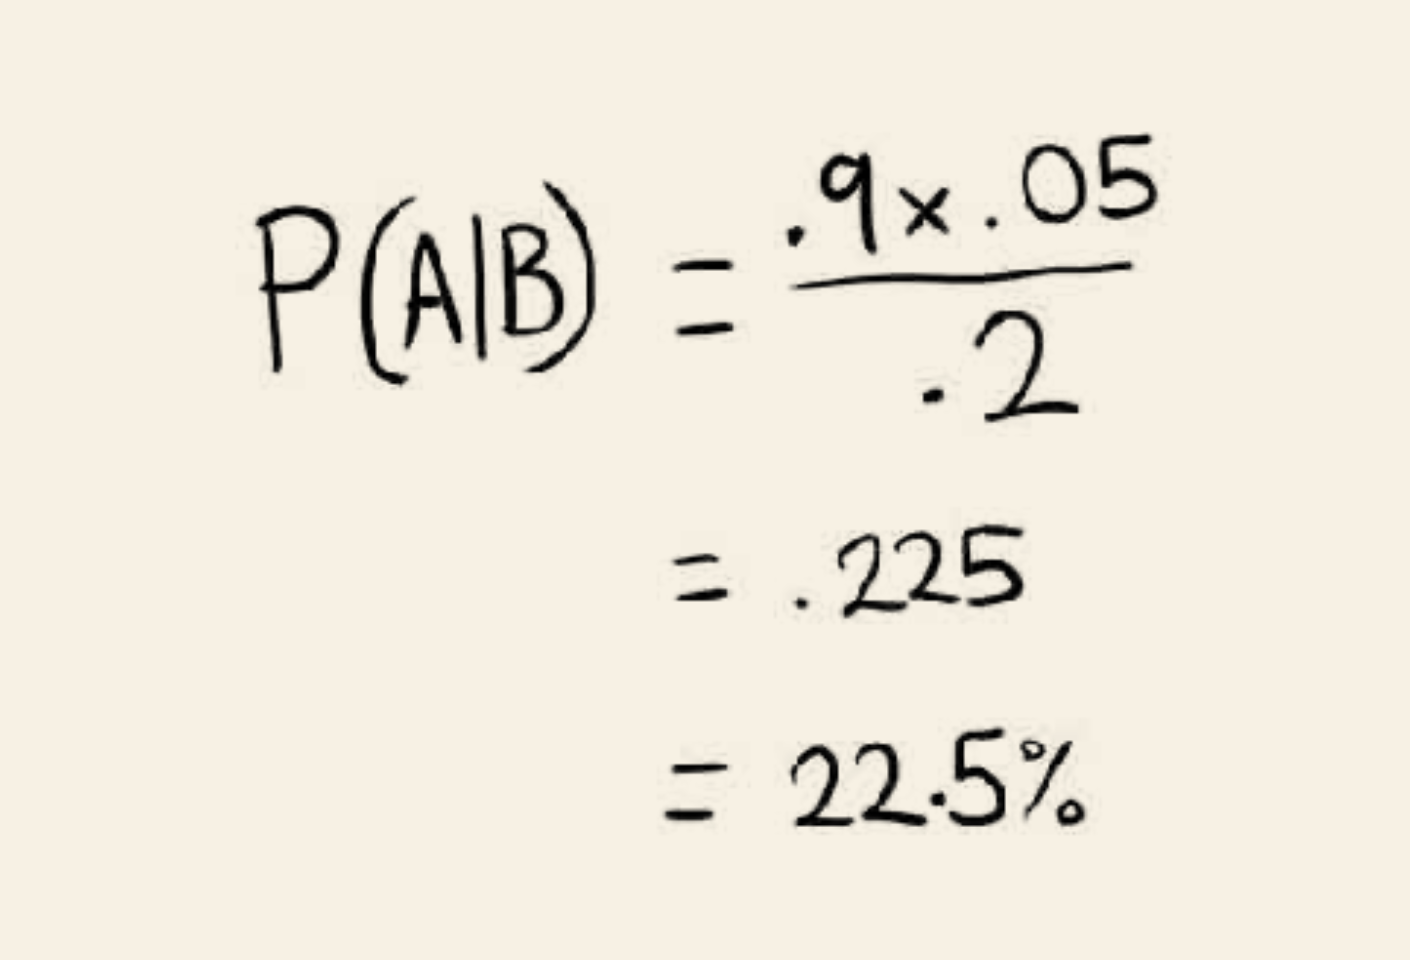 P(A|B) = .9 x .05 / .2
= .225
= 22.5%